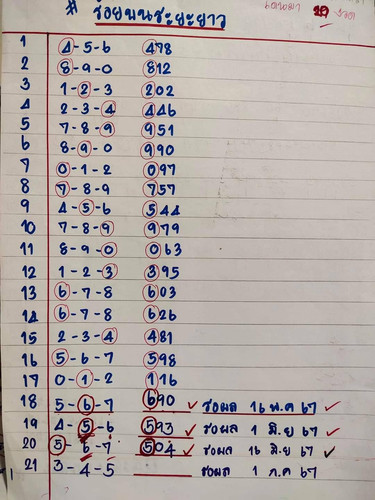 # ร้อยบนระยะยาว
เดินมา 20 งวด
1 4-5-6 478
2 8-9-0 812
3 1-2-3 202
4 2-3-4 446
5 7-8-9 951
6 8-9-0 990
7 0-1-2 097
8 7-8-9 757
9 4-5-6 544
10 7-8-9 979
11 8-9-0 063
12 1-2-3 395
13 6-7-8 603
14 6-7-8 626
15 2-3-4 481
16 5-6-7 598
17 0-1-2 116
18 5-6-7 690 ✓ รอผล 16 พ.ค 67 ✓
19 4-5-6 593 ✓ รอผล 1 มิ.ย 67 ✓
20 5-6-7 504 ✓ รอผล 16 มิ.ย 67 ✓
21 3-4-5 รอผล 1 ก.ค 67